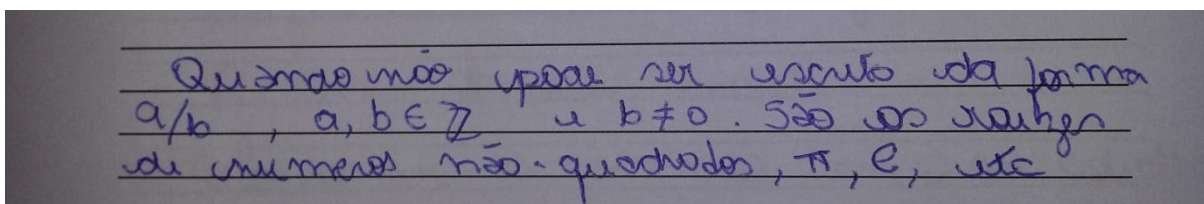 Quando não pode ser escrito da forma
a/b , a, b ∈ ℤ e b ≠ 0. São as raízes
de números não-quadrados, π, e, etc